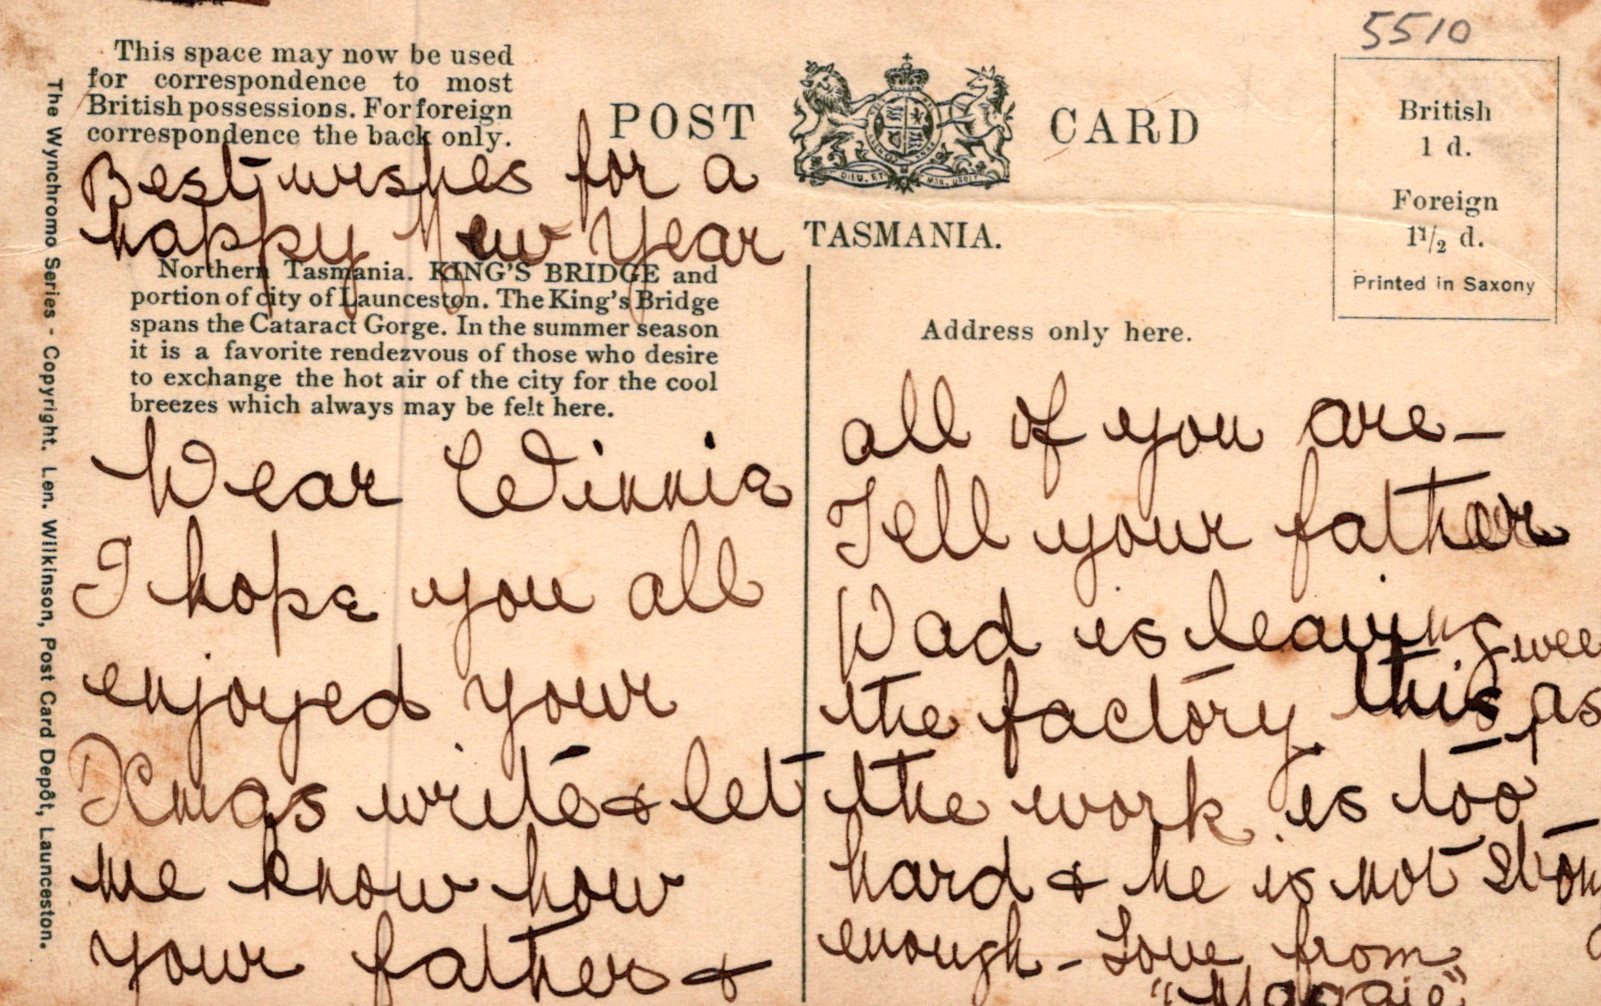 5510
This space may now be used
for correspondence to most
British possessions. For foreign
correspondence the back only.
POST CARD
TASMANIA.
British
1 d.
Foreign
1 1/2 d.
Printed in Saxony
Address only here.
The Wynchromo Series - Copyright. Len. Wilkinson, Post Card Depôt, Launceston.
Best wishes for a
happy New Year
Northern Tasmania. KING'S BRIDGE and
portion of city of Launceston. The King's Bridge
spans the Cataract Gorge. In the summer season
it is a favorite rendezvous of those who desire
to exchange the hot air of the city for the cool
breezes which always may be felt here.
Dear Winnie
I hope you all
enjoyed your
Xmas write & let
me know how
your father &
all of you are -
Tell your father
Dad is leaving
the factory this wee
as
the work is too
hard & he is not stron
enough - Love from
"Maggie"